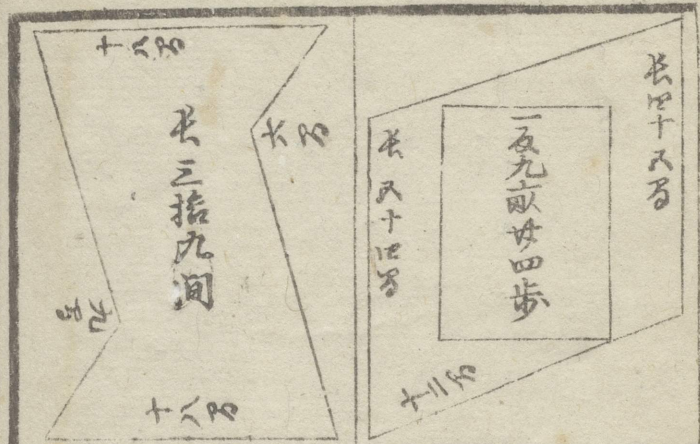 長四十五間
一反九畝廿四歩
長五十四間
十二間
十八間
六間
長三拾九間
十八間